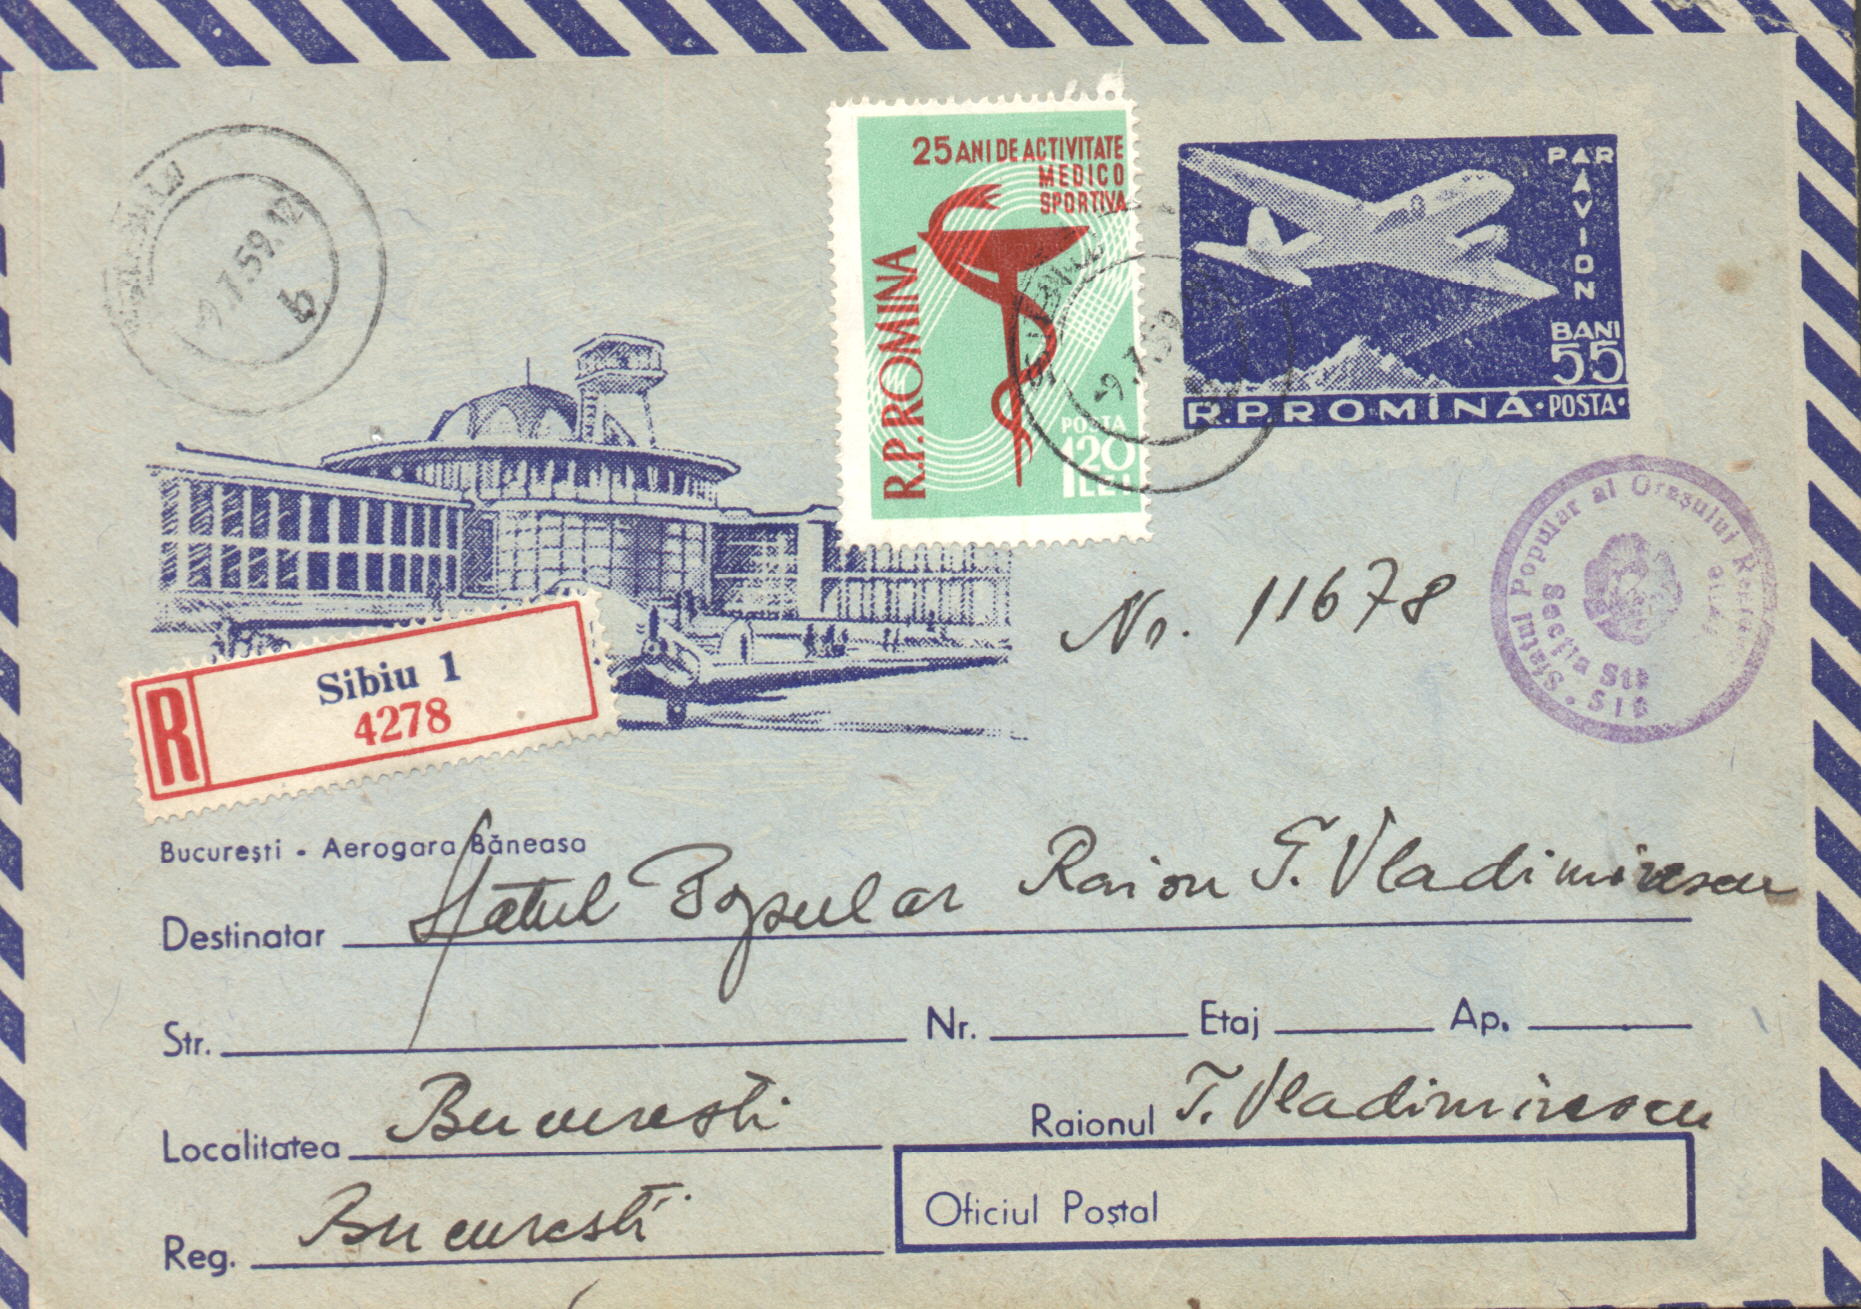 25 ANI DE ACTIVITATE
MEDICO
SPORTIVA
R.P.ROMINA
POSTA
120
LEI
PAR
AVION
BANI
55
R.P.ROMÎNĂ·POSTA·
-9.7.59.12
b
-9.7.59
Statul Popular al Orașului
Secția
Nr. 11678
R
Sibiu 1
4278
București - Aerogara Băneasa
Destinatar Statul Popular Raion T. Vladimirescu
Str. Nr. Etaj Ap.
Localitatea Bucuresti Raionul T. Vladimirescu
Reg. Bucuresti
Oficiul Poștal